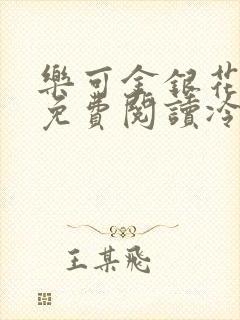 樂可金銀花
免費閱讀冷
王某飛